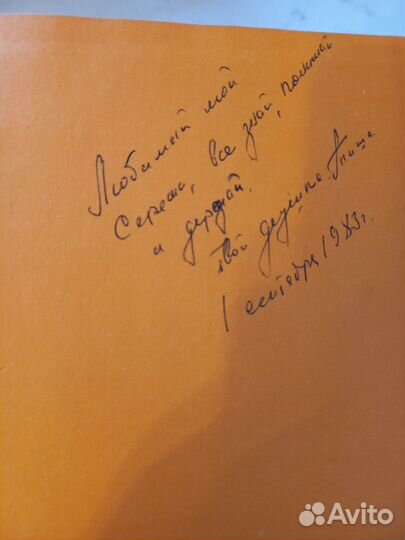 Любимый мой
Сережа, все знай, помни
и дерзай.
твой дедушка.
1 сентября 1983г.
Avito